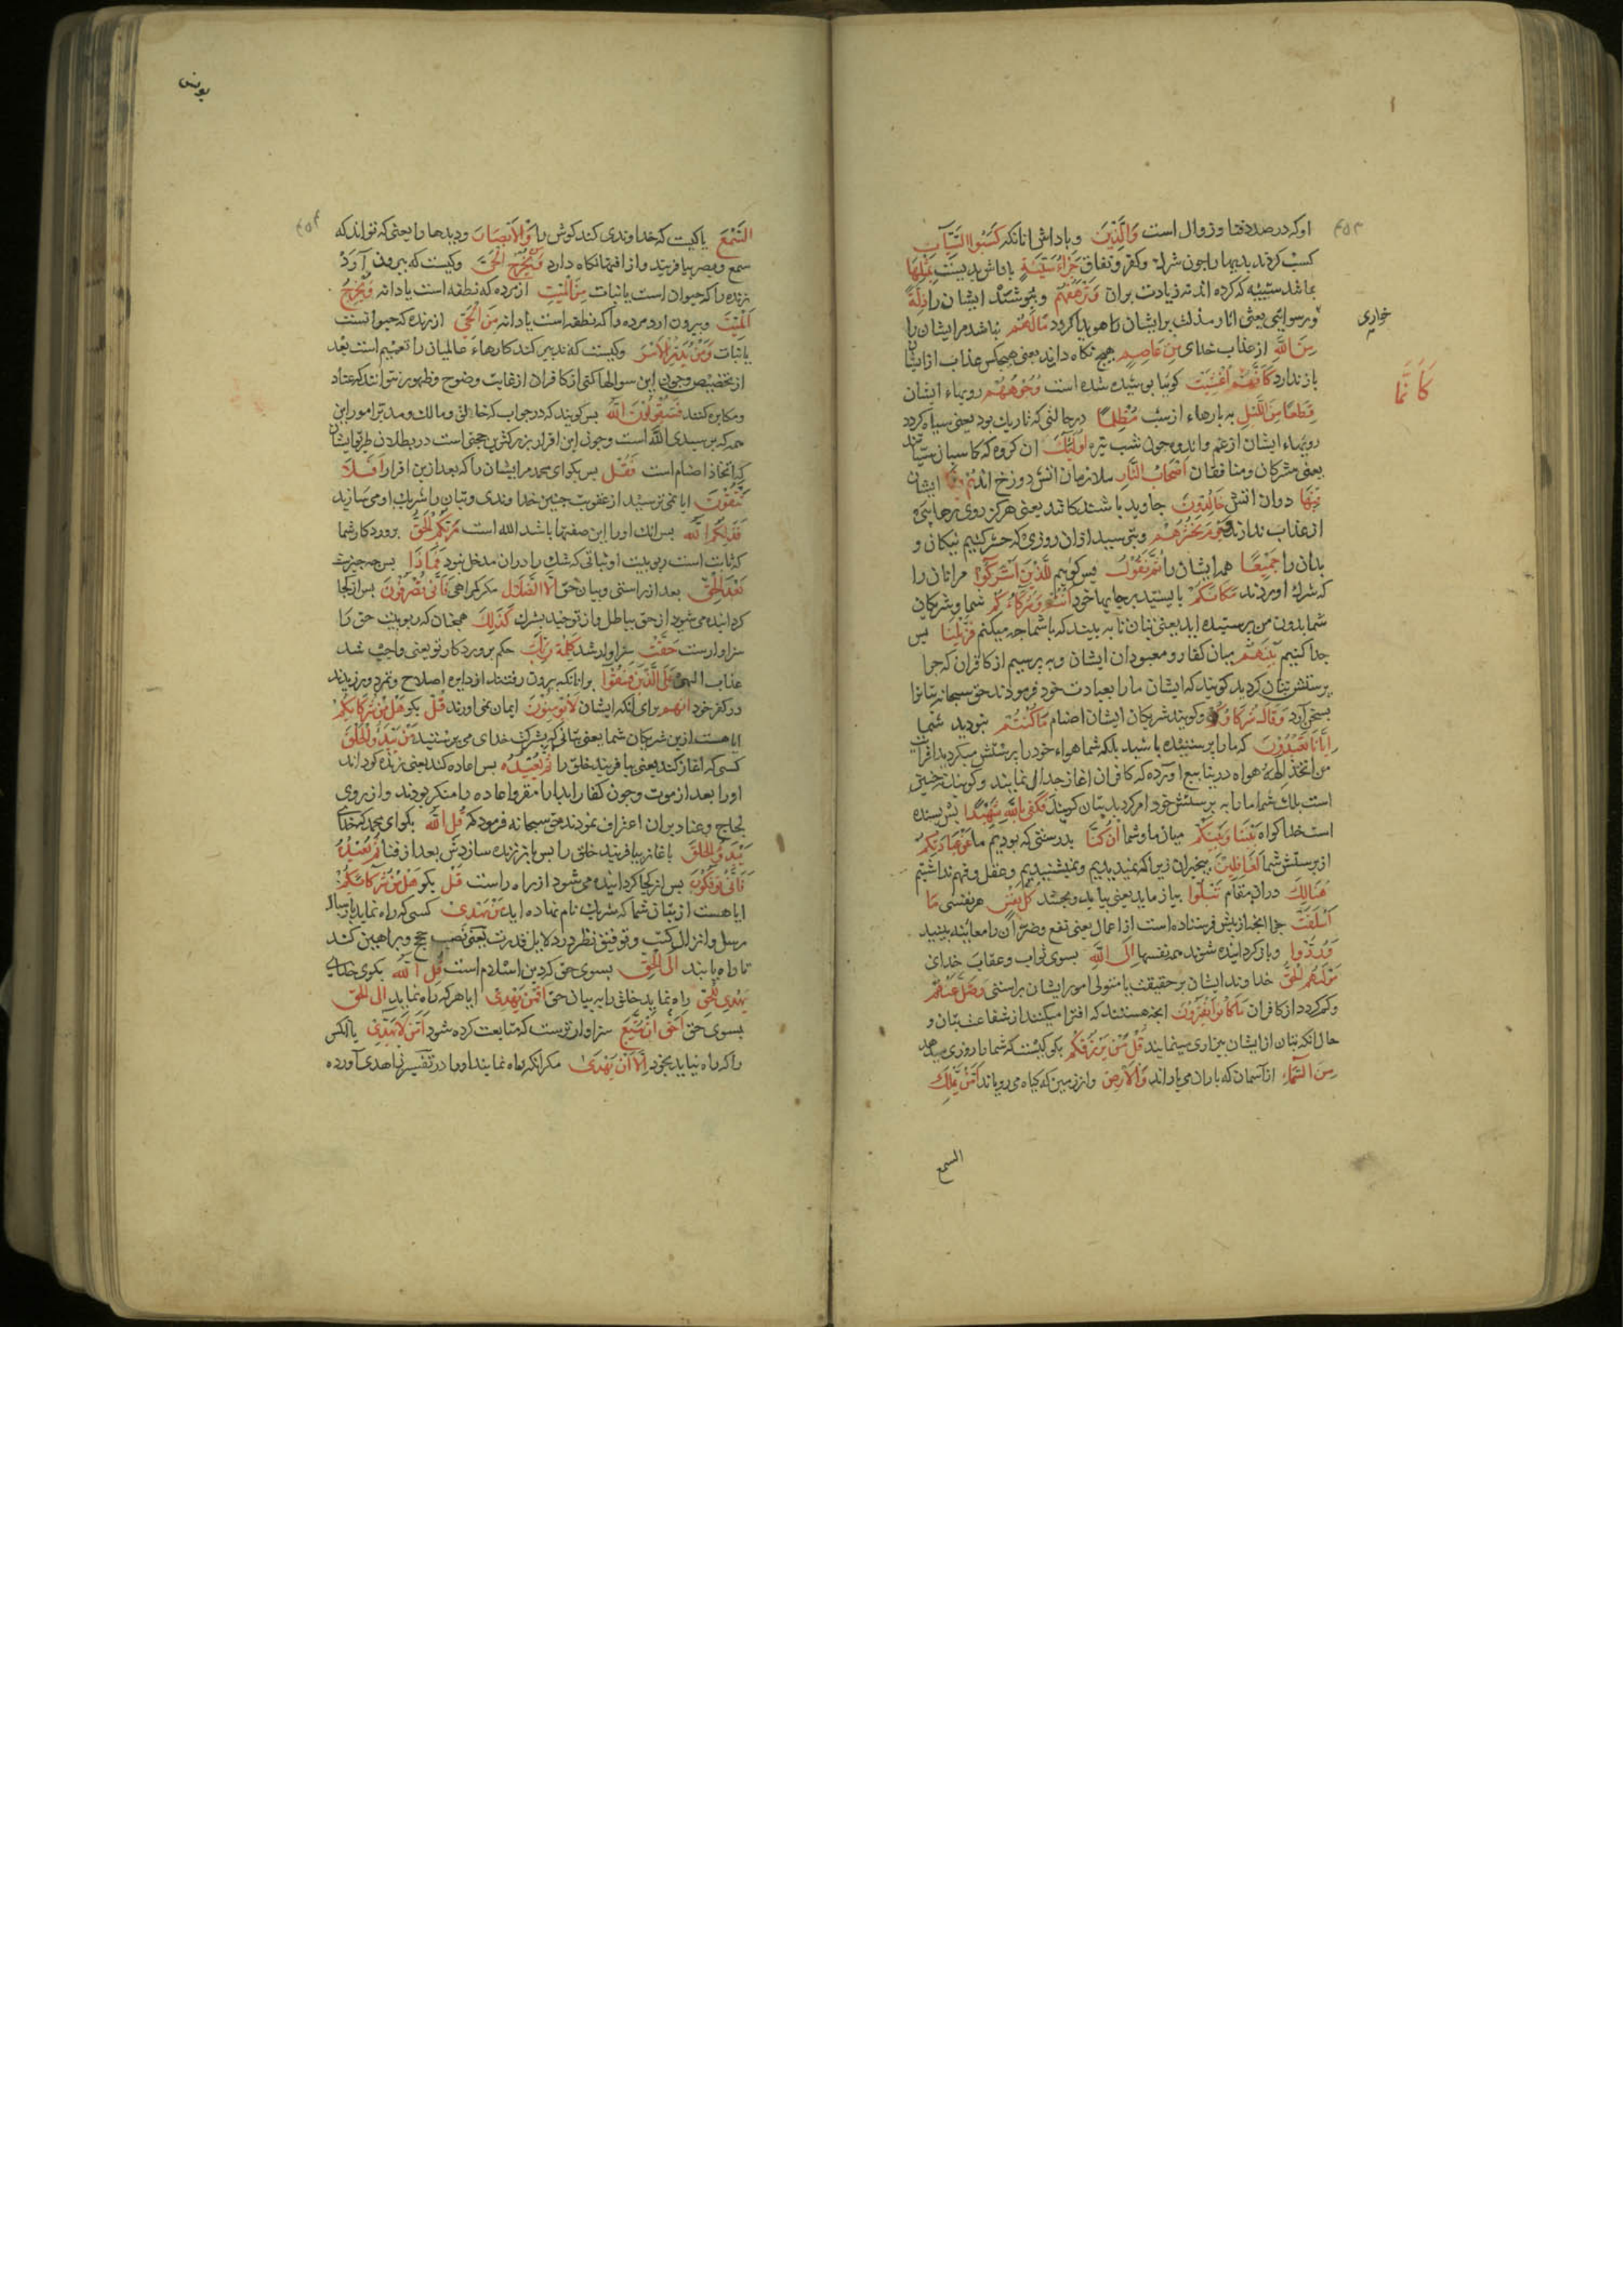 ۴۵۳
او که در صدد فنا و زوال است وَالَّذِينَ و پاداش انانکه كَسَبُوا السَّيِّآتِ
کسب کردند بدیها را چون شرک و کفر و نفاق جَزَاءُ سَيِّئَةٍ پاداش بدیست بِمِثْلِهَا
بما شد سیئه که کرده اند نه زیادت بران وَتَرْهَقُهُمْ و بپوشند ایشان را ذِلَّةٌ
خواری
و رسوائی یعنی اثار مذلت بر ایشان را هویدا کردد مَا لَهُمْ نباشد مر ایشان را
مِنَ اللَّهِ از عذاب خدای مِنْ عَاصِمٍ هیچ نگاه دارنده یعنی هیچکس عذاب از ایشان
كَأَنَّمَا
باز ندارد كَأَنَّهُمْ أُغْشِيَتْ کوئیا پوشیده شده است وُجُوهُهُمْ رویهاء ایشان
قِطَعًا مِنَ اللَّيْلِ به پارهاء از شب مُظْلِمًا در حالتی که تاریک بود یعنی سیاه کردد
رویهاء ایشان از غم و اندوه چون شب تیره أُولَئِكَ ان کروه که کاسبان سیئاتند
یعنی مشرکان و منافقان أَصْحَابُ النَّارِ ملازمان اتش دوزخ اند هُمْ ایشان
فِيهَا در ان اتش خَالِدُونَ جاوید باشندکانند یعنی هرکز روی رهایی
از عذاب ندارند وَيَوْمَ نَحْشُرُهُمْ و بترسید از ان روزی که حشر کنیم نیکان و
بدان را جَمِيعًا همه ایشان را ثُمَّ نَقُولُ پس کوییم لِلَّذِينَ أَشْرَكُوا مر انان را
که شرک اوردند مَكَانَكُمْ بایستید بر جایهاء خود أَنْتُمْ وَشُرَكَاؤُكُمْ شما و شریکان
شما بدون من پرستیده اید یعنی بتان تا به بینید که با شما چه میکنم فَزَيَّلْنَا پس
جدا کنیم بَيْنَهُمْ میان کفار و معبودان ایشان و به پرسیم از کافران که چرا
پرستش بتان کردید کویند که ایشان ما را بعبادت خود فرمودند حق سبحانه بتانرا
بسخن آرد وَقَالَ شُرَكَاؤُهُمْ و کویند شریکان ایشان اصنام مَا كُنْتُمْ نبودید شما
إِيَّانَا تَعْبُدُونَ که ما را پرستیده باشید بلکه شما هواء خود را پرستش میکردید افرایت
من اتخذ الهه هواه در ینابیع اورده که کافران اغاز جدال نمایند و کویند نه چنین
است بلک شما ما را به پرستش خود امر کردید بتان کویند فَكَفَى بِاللَّهِ شَهِيدًا پس بسنده
است خدا کواه بَيْنَنَا وَبَيْنَكُمْ میان ما و شما إِنْ كُنَّا بدرستی که بودیم ما عَنْ عِبَادَتِكُمْ
از پرستش شما لَغَافِلِينَ بیخبران زیرا که نمیدیدیم و نمیشنیدیم و عقل و فهم نداشتیم
هُنَالِكَ در ان مقام تَبْلُوا بیازماید یعنی بیابد و بچشد كُلُّ نَفْسٍ هر نفسی مَا
أَسْلَفَتْ جزا انچه از پیش فرستاده است از اعمال یعنی نفع و ضر ان را معاینه بیند
وَرُدُّوا و باز کردانیده شوند همه نفسها إِلَى اللَّهِ بسوی ثواب و عقاب خدای
مَوْلَاهُمُ الْحَقِّ خداوند ایشان بر حقیقت یا متولی امور ایشان براستی وَضَلَّ عَنْهُمْ
و کم کردد از کافران مَا كَانُوا يَفْتَرُونَ انچه هستند که افترا میکنند از شفاعت بتان و
حال انکه بتان از ایشان بیزاری مینمایند قُلْ مَنْ يَرْزُقُكُمْ بکو کیست که شما را روزی میدهد
مِنَ السَّمَاءِ از آسمان که باران می باراند وَالْأَرْضِ و از زمین که کیاه می رویاند أَمَّنْ يَمْلِكُ
السمع
یونس
۴۵۴
السَّمْعَ یا کیست که خداوندی کند کوش را وَالْأَبْصَارَ و دیدها را یعنی که تواند که
سمع و بصر بیافریند و از افتها نکاه دارد وَمَنْ يُخْرِجُ الْحَيَّ و کیست که بیرون آورد
زنده را که حیوان است یا نبات مِنَ الْمَيِّتِ از مرده که نطفه است یا دانه وَيُخْرِجُ
الْمَيِّتَ و بیرون ارد مرده را که نطفه است یا دانه مِنَ الْحَيِّ از زنده که حیوانست
یا نبات وَمَنْ يُدَبِّرُ الْأَمْرَ و کیست که تدبیر کند کارهاء عالمیان را تعمیم است بعد
از تخصیص و چون این سوالها کنی از کافران از غایت وضوح و ظهور نتوانند که عناد
و مکابره کنند فَسَيَقُولُونَ اللَّهُ پس کویند که در جواب که خالق و مالک و مدبر امور این
همه که پرسیدی الله است و چون این اقرار بزرکترین حجتی است در بطلان طریق ایشان
که اتخاذ اصنام است فَقُلْ پس بکو ای محمد مر ایشان را که بعد ازین اقرار أَفَلَا
تَتَّقُونَ ایا نمی ترسید از عقوبت چنین خداوندی و بتان را شریک او می سازید
فَذَلِكُمُ اللَّهُ پس انک او را این صفتها باشد الله است رَبُّكُمُ الْحَقُّ پروردکار شما
که ثابت است ربوبیت او ثباتی که شک را در ان مدخل نبود فَمَاذَا پس چه چیزست
بَعْدَ الْحَقِّ بعد از راستی و بیان حق إِلَّا الضَّلَالُ مکر کمراهی فَأَنَّى تُصْرَفُونَ پس از کجا
کردانیده می شوید از حق بباطل و از توحید بشرک كَذَلِكَ همچنان که ربوبیت حق را
سزاوارست حَقَّتْ سزاوار شد كَلِمَةُ رَبِّكَ حکم پروردکار تو یعنی واجب شد
عذاب الهی عَلَى الَّذِينَ فَسَقُوا بر انانکه بیرون رفتند از دایره اصلاح و تمرد ورزیدند
در کفر خود أَنَّهُمْ برای انکه ایشان لَا يُؤْمِنُونَ ایمان نمی اورند قُلْ بکو هَلْ مِنْ شُرَكَائِكُمْ
ایا هست ازین شریکان شما یعنی بتانی که بشرکت خدای می پرستید مَنْ يَبْدَؤُا الْخَلْقَ
کسی که اغاز کند یعنی بیافریند خلق را ثُمَّ يُعِيدُهُ پس اعاده کند یعنی زنده کرداند
او را بعد از موت و چون کفار ابدا را مقر و اعاده را منکر بودند و از روی
لجاج و عناد بران اعتراف نمودند حق سبحانه فرمود که قُلِ اللَّهُ بکو ای محمد که خدای
يَبْدَؤُا الْخَلْقَ باغاز بیافریند خلق را پس باز زنده سازدش بعد از فنا ثُمَّ يُعِيدُهُ
فَأَنَّى تُؤْفَكُونَ پس از کجا کردانیده می شوید از راه راست قُلْ بکو هَلْ مِنْ شُرَكَائِكُمْ
ایا هست از بتان شما که شریک نام نهاده اید مَنْ يَهْدِي کسی که راه نماید بارسال
رسل و انزال کتب و توفیق نظر در دلایل قدرت یعنی نصب حجج و براهین کند
تا راه یابند إِلَى الْحَقِّ بسوی حق که دین اسلام است قُلِ اللَّهُ بکوی خدای
يَهْدِي لِلْحَقِّ راه نماید خلق را به بیان حق أَفَمَنْ يَهْدِي ایا هر که راه نماید إِلَى الْحَقِّ
بسوی حق أَحَقُّ أَنْ يُتَّبَعَ سزاوارترست که متابعت کرده شود أَمَّنْ لَا يَهِدِّي یا انکس
را که راه نیابد بخود إِلَّا أَنْ يُهْدَى مکر انکه راه نمایند او را در تفسیر زاهدی آورده